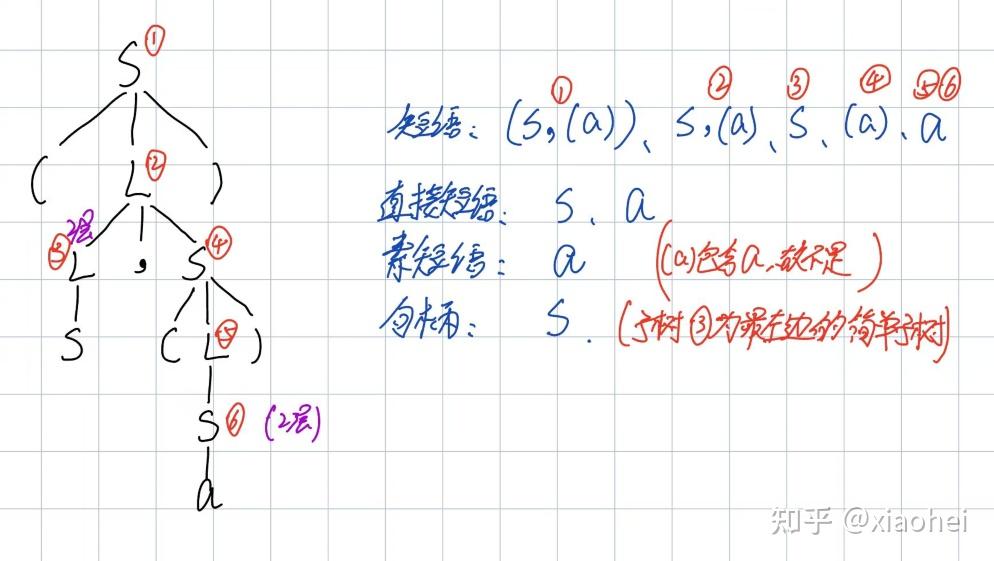 S①
( L② )
2层
③L , S④
S ( L⑤ )
S⑥ (2层)
a
① ② ③ ④ ⑤⑥
短语: (S,(a))、S,(a)、S、(a)、a
直接短语: S、a
素短语: a ((a)包含a,故不是)
句柄: S. (子树③为最左边的简单子树)
知乎 @xiaohei